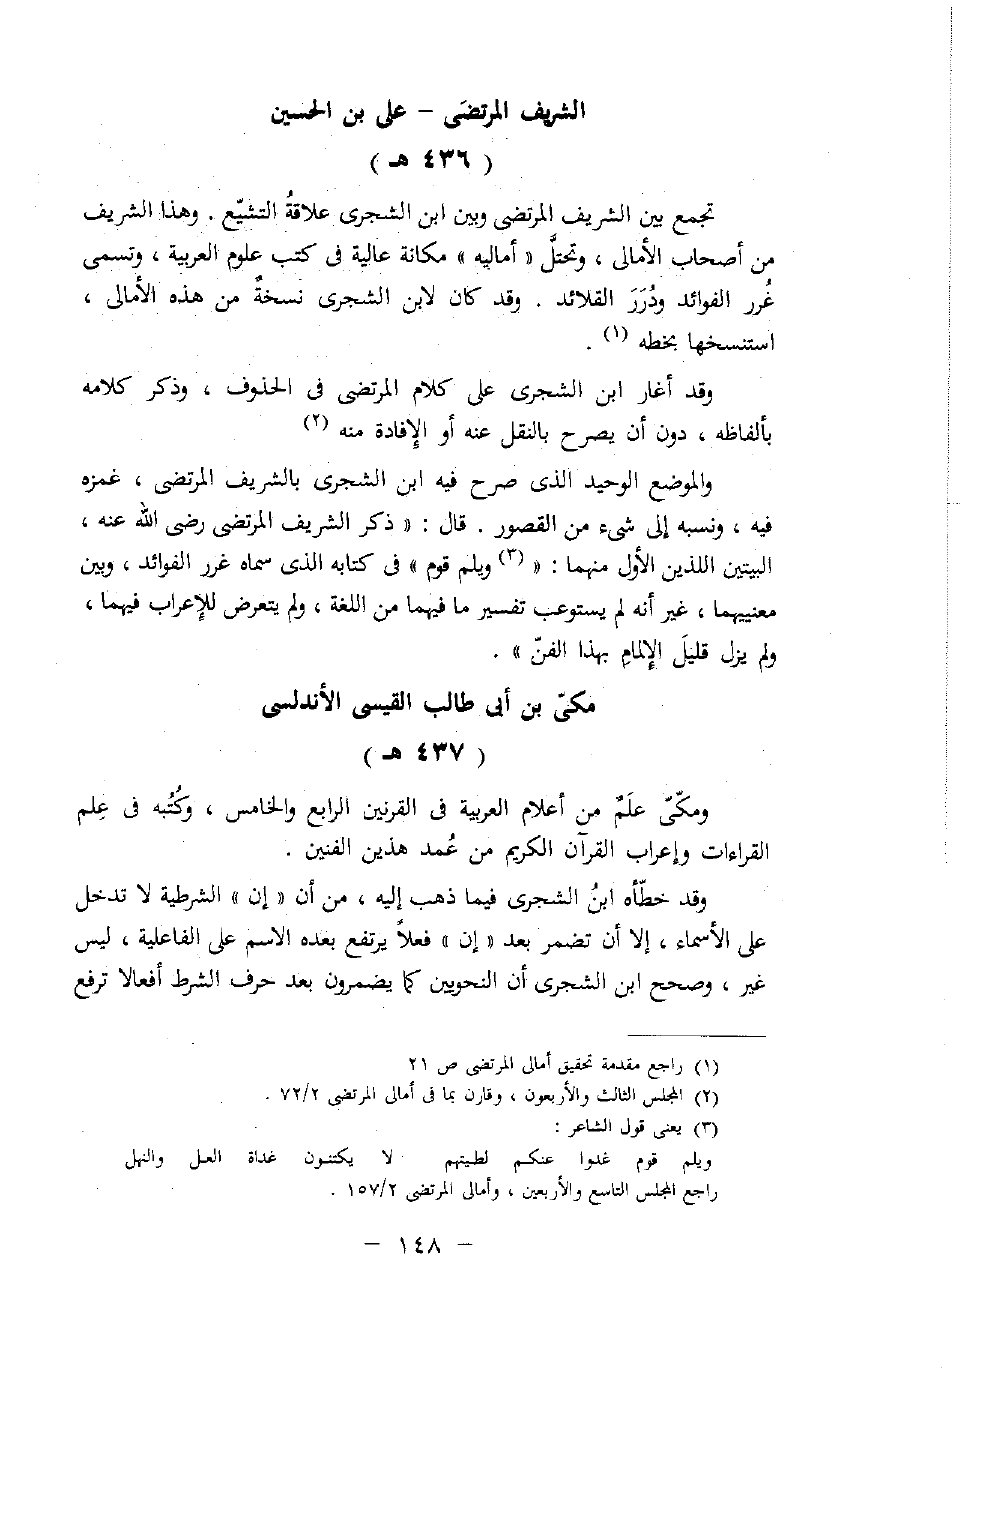 الشريف المرتضَى – على بن الحسين
( ٤٣٦ هـ )
تجمع بين الشريف المرتضى وبين ابن الشجرى علاقةُ التشيّع . وهذا الشريف
من أصحاب الأمالى ، وتحتلُّ « أماليه » مكانة عالية فى كتب علوم العربية ، وتسمى
غُرر الفوائد ودُرَرَ القلائد . وقد كان لابن الشجرى نسخةٌ من هذه الأمالى ،
استنسخها بخطه (١) .
وقد أغار ابن الشجرى على كلام المرتضى فى الحذوف ، وذكر كلامه
بألفاظه ، دون أن يصرح بالنقل عنه أو الإفادة منه (٢)
والموضع الوحيد الذى صرح فيه ابن الشجرى بالشريف المرتضى ، غمزه
فيه ، ونسبه إلى شىء من القصور . قال : « ذكر الشريف المرتضى رضى الله عنه ،
البيتين اللذين الأول منهما : « (٣) ويلم قوم » فى كتابه الذى سماه غرر الفوائد ، وبين
معنييهما ، غير أنه لم يستوعب تفسير ما فيهما من اللغة ، ولم يتعرض للإعراب فيهما ،
ولم يزل قليلَ الإلمامِ بهذا الفنّ » .
مكىّ بن أبى طالب القيسى الأندلسى
( ٤٣٧ هـ )
ومكّىّ علَمٌ من أعلام العربية فى القرنين الرابع والخامس ، وكُتُبه فى عِلم
القراءات وإعراب القرآن الكريم من عُمد هذين الفنين .
وقد خطّأه ابنُ الشجرى فيما ذهب إليه ، من أن « إن » الشرطية لا تدخل
على الأسماء ، إلا أن تضمر بعد « إن » فعلاً يرتفع بعده الاسم على الفاعلية ، ليس
غير ، وصحح ابن الشجرى أن النحويين كما يضمرون بعد حرف الشرط أفعالا ترفع
(١) راجع مقدمة تحقيق أمالى المرتضى ص ٢١
(٢) المجلس الثالث والأربعون ، وقارن بما فى أمالى المرتضى ٧٢/٢ .
(٣) يعنى قول الشاعر :
ويلم قوم غدوا عنكم لطيتهم لا يكتنون غداة العل والنهل
راجع المجلس التاسع والأربعين ، وأمالى المرتضى ١٥٧/٢ .
– ١٤٨ –